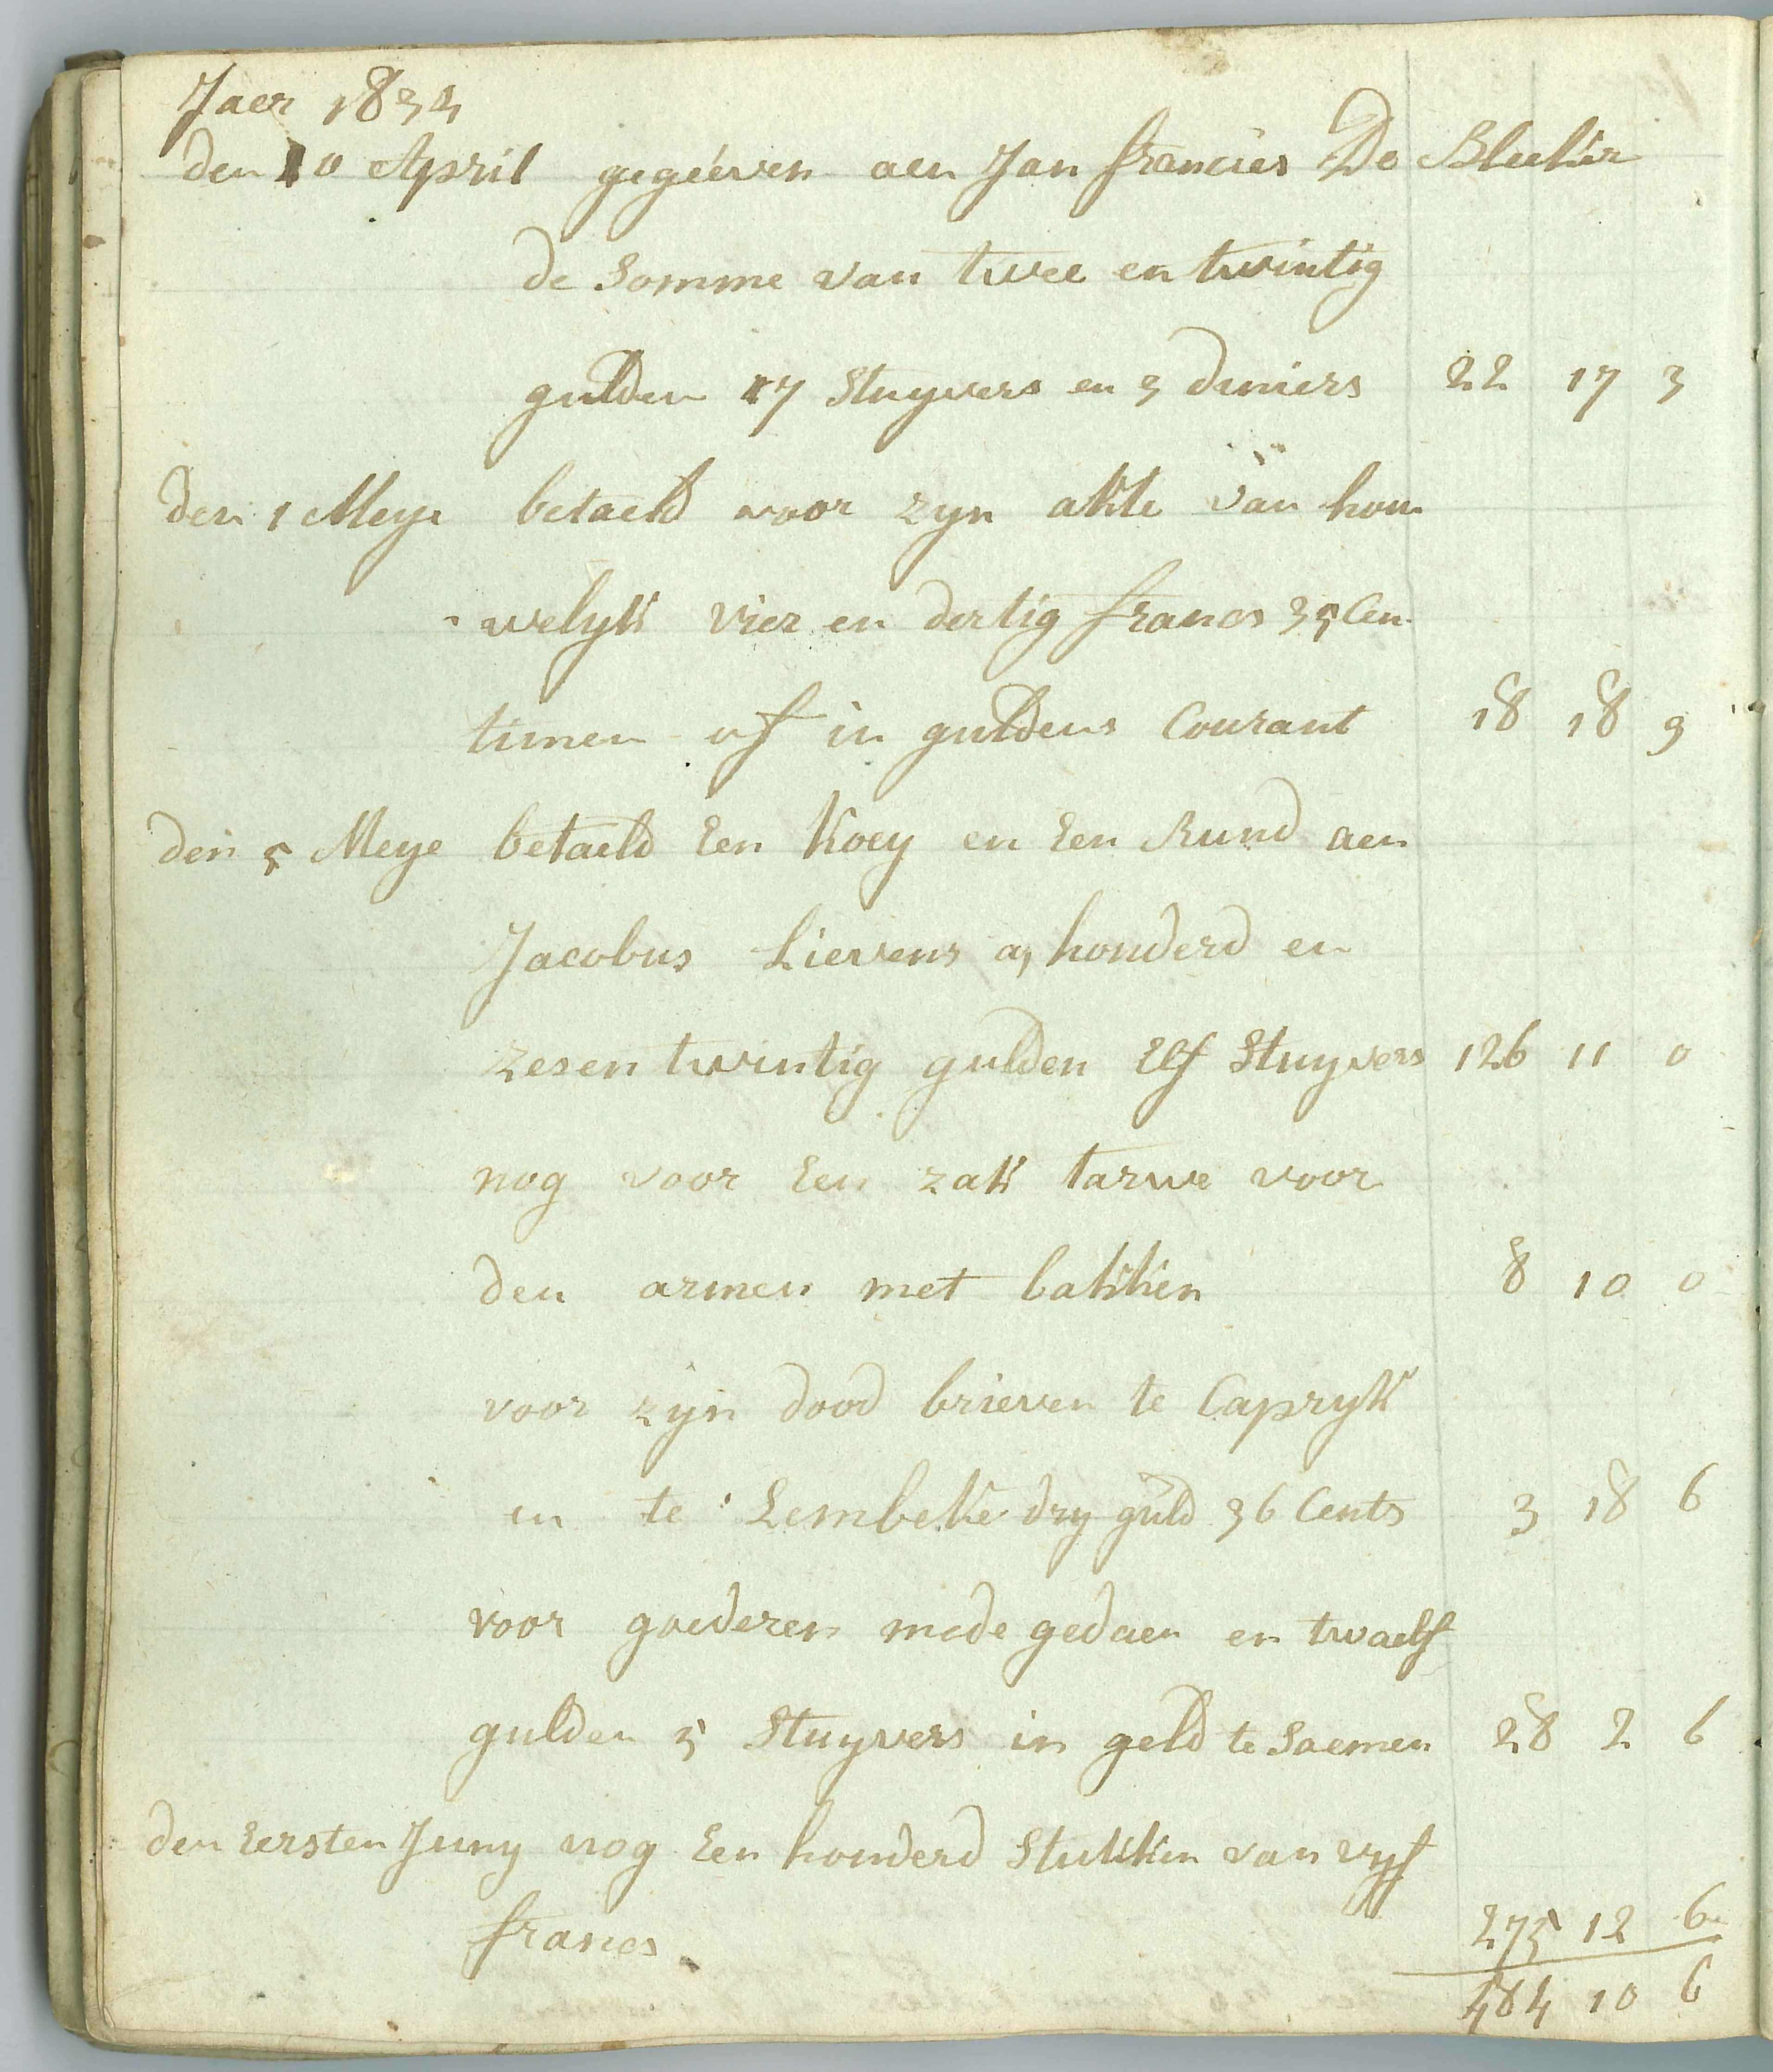 Jaer 1834
den 10 April gegeéven aen Jan francies De Bleeker
de Somme van twee en twintig
gulden 17 Stuyvers en 3 deniers 22 17 3
den 1 Meye betaeld voor zyn akte van hou
welyk vier en dertig francs 35 Cen
timen of in guldens Courant 18 18 9
den 5 Meye betaeld Een Koey en Een Rund aen
Jacobus Lievens a, honderd en
zesen twintig gulden Elf Stuyvers 126 11 0
nog voor Een zak tarwe voor
den armen met bakken 8 10 0
voor zyn dood brieven te Capryk
en te Lembeke dry guld 36 Cents 3 18 6
voor goederen mede gedaen en twaelf
gulden 5 Stuyvers in geld te Saemen 28 2 6
den Eersten Juny nog Een honderd Stukken van vyf
francs 275 12 6
484 10 6